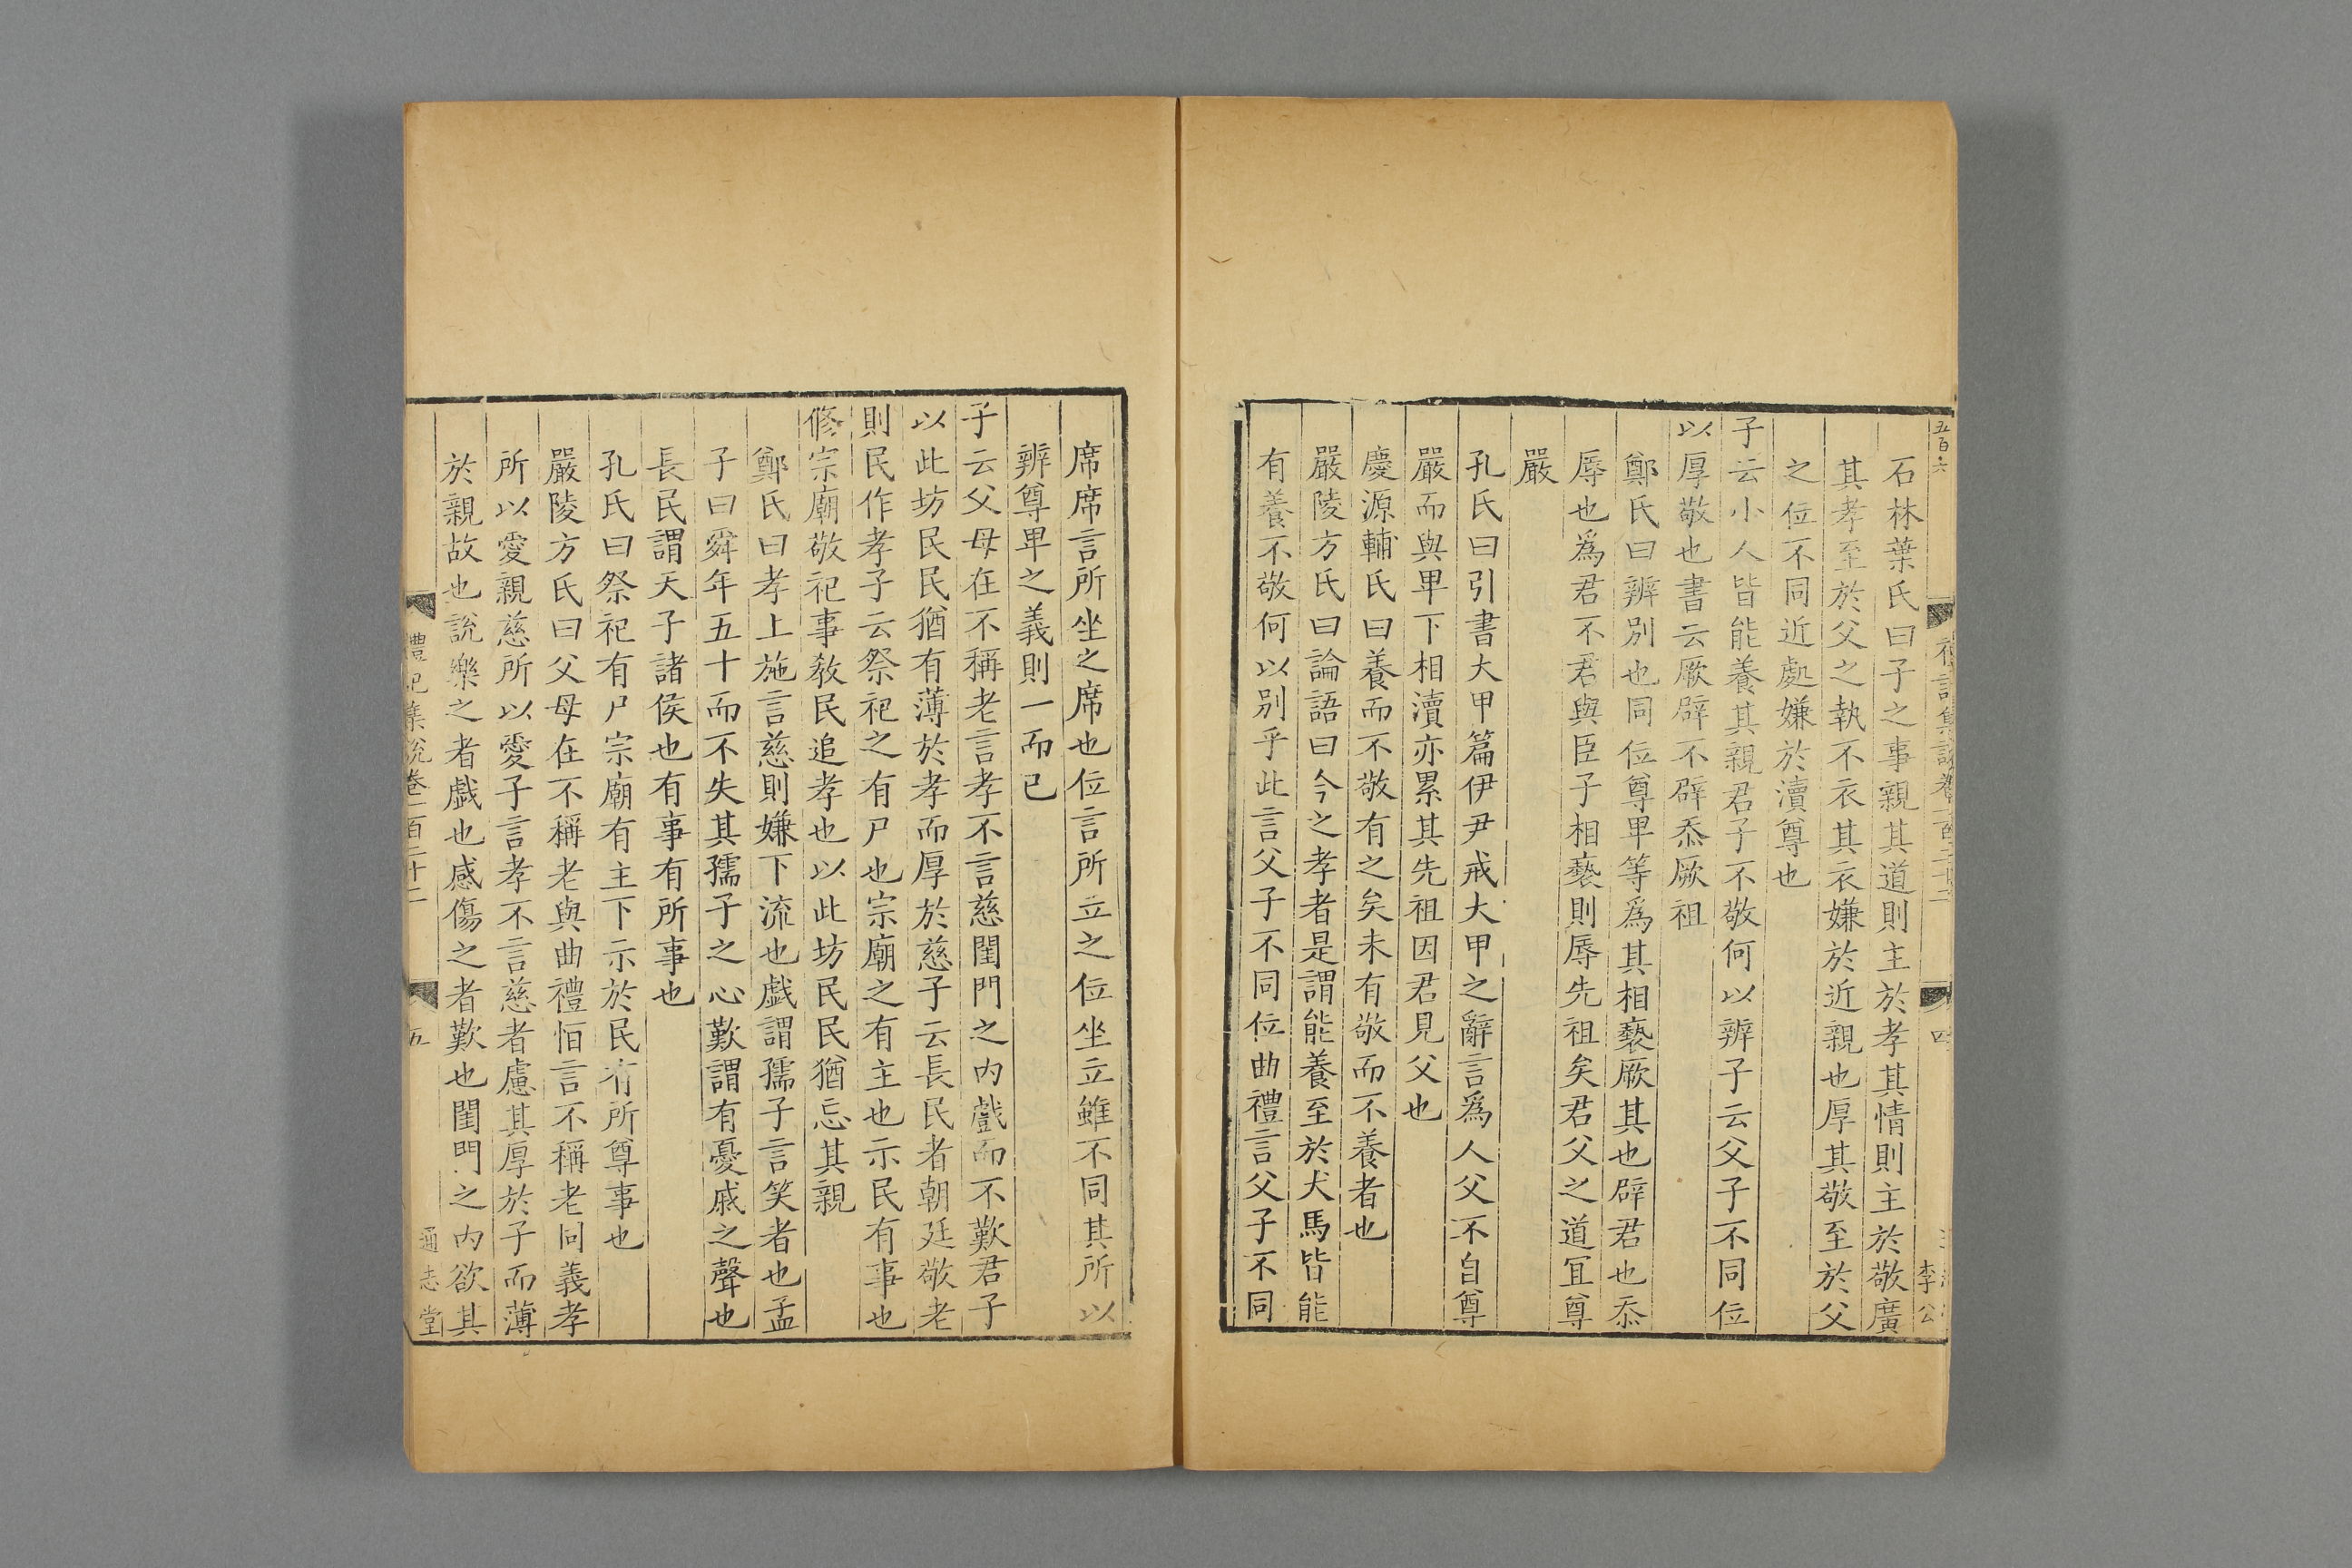 五百六
石林葉氏曰子之事親其道則主於孝其情則主於敬廣
其孝至於父之執不衣其衣嫌於近親也厚其敬至於父
之位不同近處嫌於瀆尊也
子云小人皆能養其親君子不敬何以辨子云父子不同位
以厚敬也書云厥辟不辟忝厥祖
鄭氏曰辨別也同位尊卑等爲其相褻厥其也辟君也忝
辱也爲君不君與臣子相褻則辱先祖矣君父之道宜尊
嚴
孔氏曰引書大甲篇伊尹戒大甲之辭言爲人父不自尊
嚴而與卑下相瀆亦累其先祖因君見父也
慶源輔氏曰養而不敬有之矣未有敬而不養者也
嚴陵方氏曰論語曰今之孝者是謂能養至於犬馬皆能
有養不敬何以別乎此言父子不同位曲禮言父子不同
四
李公
席席言所坐之席也位言所立之位坐立雖不同其所以
辨尊卑之義則一而已
子云父母在不稱老言孝不言慈閨門之內戲而不歎君子
以此坊民民猶有薄於孝而厚於慈子云長民者朝廷敬老
則民作孝子云祭祀之有尸也宗廟之有主也示民有事也
修宗廟敬祀事敎民追孝也以此坊民民猶忘其親
鄭氏曰孝上施言慈則嫌下流也戲謂孺子言笑者也孟
子曰舜年五十而不失其孺子之心歎謂有憂戚之聲也
長民謂天子諸侯也有事有所事也
孔氏曰祭祀有尸宗廟有主下示於民有所尊事也
嚴陵方氏曰父母在不稱老與曲禮恒言不稱老同義孝
所以愛親慈所以愛子言孝不言慈者慮其厚於子而薄
於親故也說樂之者戲也感傷之者歎也閨門之內欲其
禮記集說卷一百二十二
五
通志堂